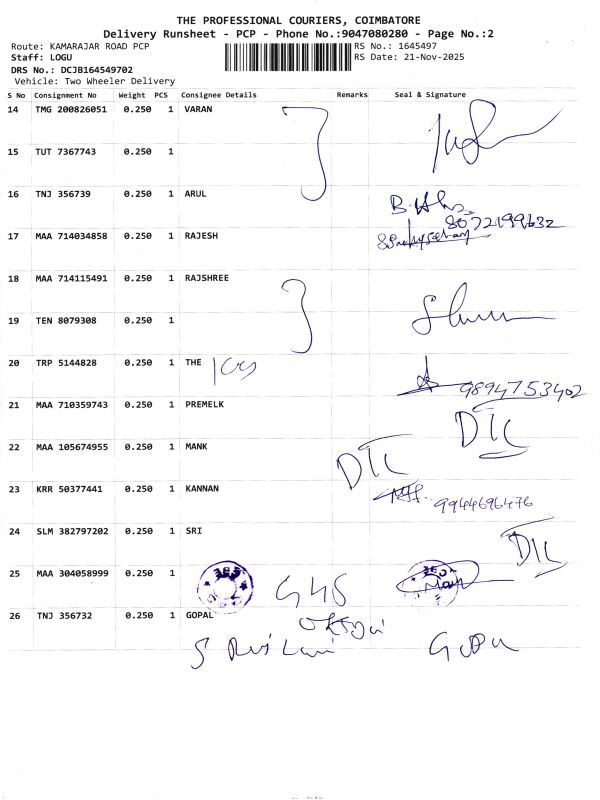 THE PROFESSIONAL COURIERS, COIMBATORE
Delivery Runsheet - PCP - Phone No.:9047080280 - Page No.:2
Route: KAMARAJAR ROAD PCP RS No.: 1645497
Staff: LOGU RS Date: 21-Nov-2025
DRS No.: DCJB164549702
Vehicle: Two Wheeler Delivery
S No Consignment No Weight PCS Consignee Details Remarks Seal & Signature
14 TMG 200826051 0.250 1 VARAN
15 TUT 7367743 0.250 1
16 TNJ 356739 0.250 1 ARUL
8072199632
17 MAA 714034858 0.250 1 RAJESH
18 MAA 714115491 0.250 1 RAJSHREE
19 TEN 8079308 0.250 1
20 TRP 5144828 0.250 1 THE
9894753402
21 MAA 710359743 0.250 1 PREMELK
DTC
22 MAA 105674955 0.250 1 MANK
DTC
23 KRR 50377441 0.250 1 KANNAN
9944696476
24 SLM 382797202 0.250 1 SRI
DTC
25 MAA 304058999 0.250 1
26 TNJ 356732 0.250 1 GOPAL